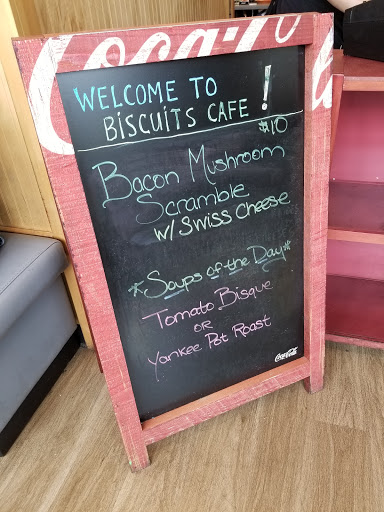 Coca-Cola
WELCOME TO !
BISCUITS CAFE
$10
Bacon Mushroom
Scramble
w/ Swiss Cheese
*Soups of the Day*
Tomato Bisque
OR
Yankee Pot Roast
Coca-Cola